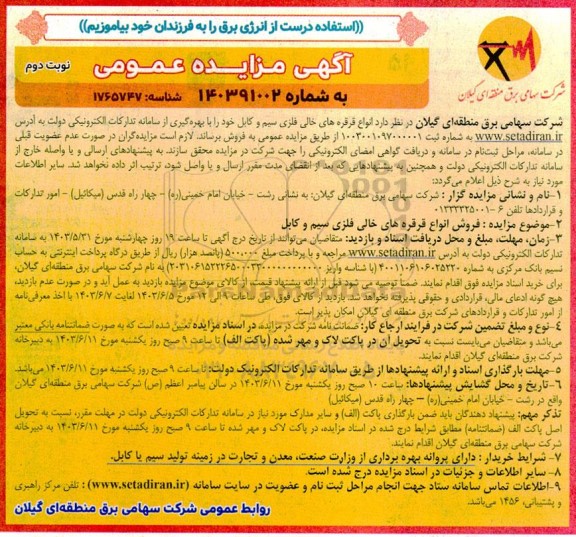 ((استفاده درست از انرژی برق را به فرزندان خود بیاموزیم))
آگهی مزایده عمومی
نوبت دوم
به شماره ۱۴۰۳۹۱۰۰۲ شناسه: ۱۷۶۵۷۴۷
شرکت سهامی برق منطقه‌ای گیلان
شرکت سهامی برق منطقه‌ای گیلان در نظر دارد انواع قرقره های خالی فلزی سیم و کابل خود را با بهره‌گیری از سامانه تدارکات الکترونیکی دولت به آدرس
www.setadiran.ir به شماره ثبت ۱۰۰۳۰۰۱۰۹۷۰۰۰۰۰۱ از طریق مزایده عمومی به فروش برساند. لازم است مزایده‌گران در صورت عدم عضویت قبلی
در سامانه، مراحل ثبت‌نام در سامانه و دریافت گواهی امضای الکترونیکی را جهت شرکت در مزایده محقق سازند. به پیشنهادهای ارسالی و یا واصله خارج از
سامانه تدارکات الکترونیکی دولت و همچنین به پیشنهادهایی که بعد از انقضای مدت مقرر ارسال و یا واصل شود، ترتیب اثر داده نخواهد شد. سایر اطلاعات
مورد نیاز به شرح ذیل اعلام می‌گردد:
۱-نام و نشانی مزایده گزار : شرکت سهامی برق منطقه‌ای گیلان: به نشانی رشت - خیابان امام خمینی(ره) - چهار راه قدس (میکائیل) - امور تدارکات
و قراردادها تلفن ۶ -۰۱۳۳۳۲۲۵۰۰۱
۲-موضوع مزایده : فروش انواع قرقره های خالی فلزی سیم و کابل
۳-زمان، مهلت، مبلغ و محل دریافت اسناد و بازدید: متقاضیان می‌توانند از تاریخ درج آگهی تا ساعت ۱۹ روز چهارشنبه مورخ ۱۴۰۳/۵/۳۱ به سامانه
تدارکات الکترونیکی دولت به آدرس www.setadiran.ir مراجعه و با پرداخت مبلغ ۵۰۰،۰۰۰ (پانصد هزار) ریال از طریق درگاه پرداخت اینترنتی به حساب
نسیم بانک مرکزی به شماره ۴۰۰۱۱۰۶۱۰۶۰۲۵۲۲۰ (با شناسه واریز) به نام شرکت سهامی برق منطقه‌ای گیلان،
برای خرید اسناد مزایده فوق اقدام نمایند. ضمناً توصیه می شود قبل از ارائه پیشنهاد قیمت، از کالای موضوع مزایده بازدید به عمل آید و در صورت عدم بازدید،
هیچ گونه ادعای مالی، قراردادی و حقوقی پذیرفته نخواهد شد. بازدید از کالای فوق از ساعت ۸ الی ۱۳ مورخ ۱۴۰۳/۶/۵ لغایت ۱۴۰۳/۶/۷ با اخذ معرفی‌نامه
از امور تدارکات و قراردادهای شرکت برق منطقه ای گیلان امکان پذیر است.
۴-نوع و مبلغ تضمین شرکت در فرایند ارجاع کار: ضمانت‌نامه شرکت در مزایده، در اسناد مزایده تعیین شده است که به صورت ضمانتنامه بانکی معتبر
می‌باشد و متقاضیان می‌بایست نسبت به تحویل آن در پاکت لاک و مهر شده (پاکت الف) تا ساعت ۹ صبح روز یکشنبه مورخ ۱۴۰۳/۶/۱۱ به دبیرخانه
شرکت برق منطقه‌ای گیلان اقدام نمایند.
۵-مهلت بارگذاری اسناد و ارائه پیشنهادها از طریق سامانه تدارکات الکترونیک دولت: تا ساعت ۹ صبح روز یکشنبه مورخ ۱۴۰۳/۶/۱۱ می‌باشد.
۶-تاریخ و محل گشایش پیشنهادها: ساعت ۱۰ صبح روز یکشنبه مورخ ۱۴۰۳/۶/۱۱ در سالن پیامبر اعظم (ص) شرکت سهامی برق منطقه‌ای گیلان
واقع در رشت - خیابان امام خمینی(ره) – چهار راه قدس (میکائیل)
تذکر مهم: پیشنهاد دهندگان باید ضمن بارگذاری پاکت (الف) و سایر مدارک مورد نیاز در سامانه تدارکات الکترونیکی دولت در مهلت مقرر، نسبت به تحویل
اصل پاکت الف (ضمانتنامه) مطابق شرایط درج شده در اسناد مزایده، در پاکت لاک و مهر شده تا ساعت ۹ صبح روز یکشنبه مورخ ۱۴۰۳/۶/۱۱ به دبیرخانه
شرکت سهامی برق منطقه‌ای گیلان اقدام نمایند.
۷- شرایط خریدار : دارای پروانه بهره برداری از وزارت صنعت، معدن و تجارت در زمینه تولید سیم یا کابل.
۸-سایر اطلاعات و جزئیات در اسناد مزایده درج شده است.
۹-اطلاعات تماس سامانه ستاد جهت انجام مراحل ثبت نام و عضویت در سایت سامانه (www.setadiran.ir) : تلفن مرکز راهبری
و پشتیبانی، ۱۴۵۶ می‌باشد.
روابط عمومی شرکت سهامی برق منطقه‌ای گیلان